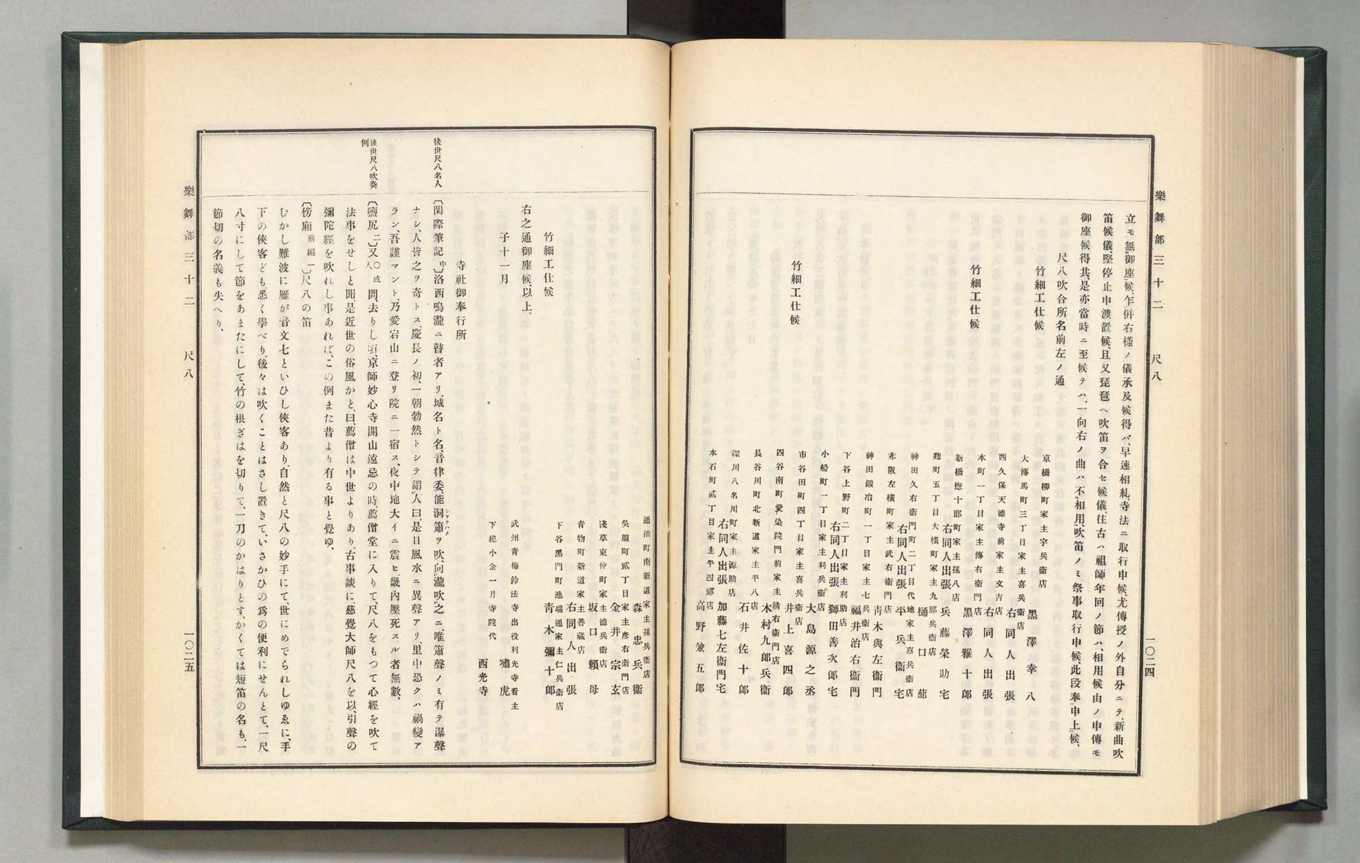 樂舞部三十二 尺八
一〇二四
立モ無御座候、乍併右樣ノ儀承及候得バ、早速相糺、寺法ニ取行申候、尤傳授ノ外自分ニテ、新曲吹
笛候儀堅停止申渡置候、且又琵琶ヘ吹笛ヲ合セ候儀、往古ハ祖師年回ノ節ハ、相用候由ノ申傳モ
御座候得共、是亦當時ニ至候テハ、一向右ノ曲ハ不相用、吹笛ノミ祭事取行申候、此段奉申上候、
尺八吹合所名前左ノ通
竹細工仕候
京橋柳町家主宇兵衞店
黑澤幸八
大傳馬町三丁目家主喜兵衞店
右同人出張
四久保天德寺前家主文吉店
右同人出張
竹細工仕候
本町一丁目家主傳右衞門店
黑澤雅十郎
新橋惣十郎町家主孫八店
右同人出張
兵藤榮助宅
麴町五丁目大橫町家主九郎兵衞店
樋口
神田久右衞門町二丁目代地家主喜兵衞店
右同人出張
平兵衞宅
赤阪左橫町家主武右衞門店
靑木與左衞門
神田鍛冶町一丁目家主七兵衞店
福井治右衞門
下谷上野町二丁目家主利助店
右同人出張
獅田善次郎宅
小船町一丁目家主利兵衞店
大島源之丞
市谷田町四丁目家主喜兵衞店
井上喜四郎
竹細工仕候
四谷南町愛染院門前家主淸右衞門店
木村九郎兵衞
長谷川町北新道家主平八店
石井佐十郎
深川八名川町家主源助店
右同人出張
加藤七左衞門宅
本石町貳丁目家主平四郎店
高野兼五郎
樂舞部三十二 尺八
一〇二五
通油町南新道家主孫兵衞店
森忠兵衞
吳服町貳丁目家主彥右衞門店
金井宗玄
淺草東仲町家主德兵衞店
坂口賴母
靑物町新道家主善藏店
右同人出張
竹細工仕候
下谷黑門町池端通家主仁兵衞店
靑木彌十郎
右之通御座候以上、
武州靑梅鈴法寺出役利光寺看主
嘯虎
子十一月
下總小金一月寺院代
西光寺
寺社御奉行所
後世尺八名人
〔閑際筆記 中〕洛西鳴瀧ニ瞽者アリ、城名ト名、音律委、能洞簫ヲ吹、向瀧吹之ニ、唯簫聲ノミ有テ瀑聲
ナシ、人皆之ヲ奇トス、慶長ノ初、一朝勃然トシテ謂人曰、是日風水ニ異聲アリ、里中恐クハ禍變ア
ラン、吾謹マント、乃愛宕山ニ登リ院ニ一宿ス、夜中地大イニ震ヒ、畿內壓死スル者無數、
後世尺八吹奏例
〔鹽尻 二〕又〇或人問、去りし頃京師妙心寺開山遠忌の時、薦僧堂に入りて、尺八をもつて心經を吹て
法事をせしと聞、是近世の俗風かと、曰、薦僧は中世よりあり、古事談に、慈覺大師尺八を以、引聲の
彌陀經を吹れし事あれば、この例また昔より有る事と覺ゆ、
〔傍廂 前編一〕尺八の笛
むかし難波に雁が音文七といひし俠客あり、自然と尺八の妙手にて、世にめでられしゆゑに、手
下の俠客ども悉く學べり、後々は吹くことはさし置きて、いさかひの爲の便利にせんとて、一尺
八寸にして節をあまたにして、竹の根ぎはを切りて、一刀のかはりとす、かくては短笛の名も、一
節切の名義も失へり、